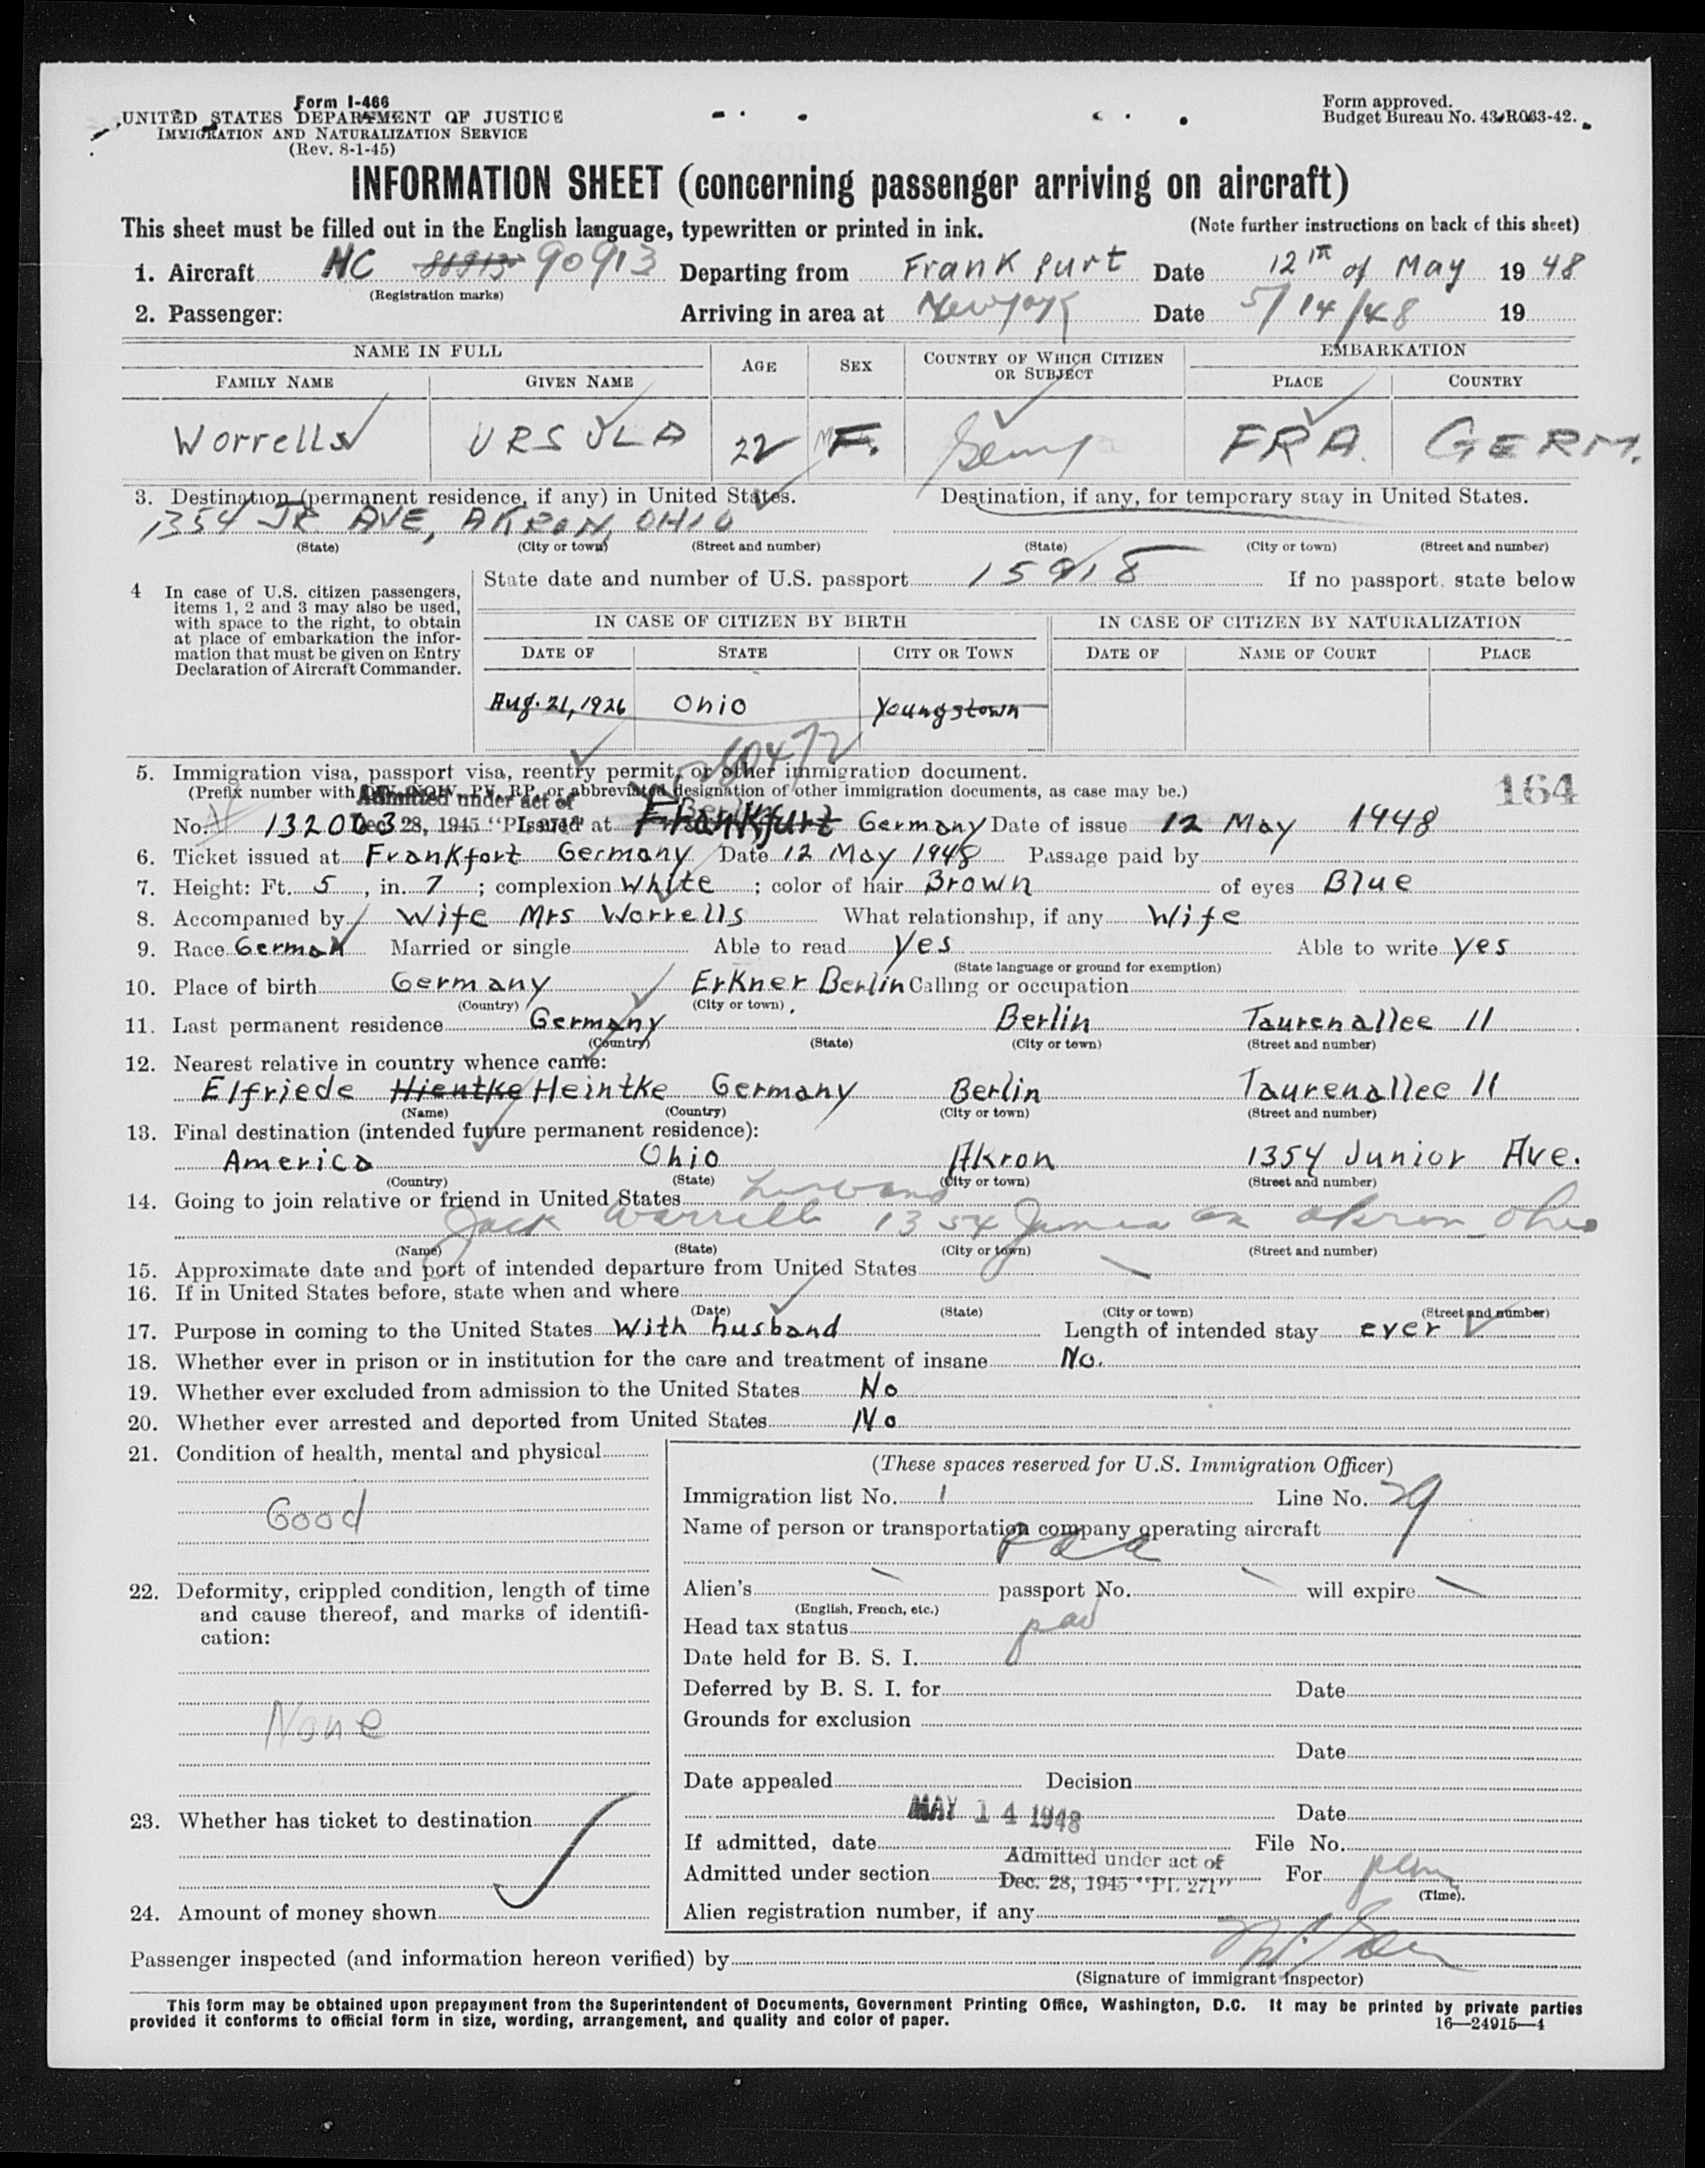 Form I-466
UNITED STATES DEPARTMENT OF JUSTICE
IMMIGRATION AND NATURALIZATION SERVICE
(Rev. 8-1-45)
Form approved.
Budget Bureau No. 43-R063-42.
INFORMATION SHEET (concerning passenger arriving on aircraft)
This sheet must be filled out in the English language, typewritten or printed in ink. (Note further instructions on back of this sheet)
1. Aircraft NC 90913 Departing from Frankfurt Date 12th of May 1948
(Registration marks)
2. Passenger: Arriving in area at New York Date 5/14/48 19
NAME IN FULL AGE SEX COUNTRY OF WHICH CITIZEN OR SUBJECT EMBARKATION
FAMILY NAME GIVEN NAME PLACE COUNTRY
Worrells URSULA 22 F. Germ FRA. GERM.
3. Destination (permanent residence, if any) in United States. Destination, if any, for temporary stay in United States.
1354 JR AVE, AKRON, OHIO
(State) (City or town) (Street and number) (State) (City or town) (Street and number)
4 In case of U.S. citizen passengers,
items 1, 2 and 3 may also be used,
with space to the right, to obtain
at place of embarkation the infor-
mation that must be given on Entry
Declaration of Aircraft Commander.
State date and number of U.S. passport 15918 If no passport, state below
IN CASE OF CITIZEN BY BIRTH IN CASE OF CITIZEN BY NATURALIZATION
DATE OF STATE CITY OR TOWN DATE OF NAME OF COURT PLACE
Aug. 21, 1926 Ohio Youngstown
60472
5. Immigration visa, passport visa, reentry permit, or other immigration document.
(Prefix number with QIV, NQIV, PV, RP, or abbreviated designation of other immigration documents, as case may be.)
164
Admitted under act of
Dec. 28, 1945 "PL 271"
No. 132003 Issued at Frankfurt Berlin Germany Date of issue 12 May 1948
6. Ticket issued at Frankfort Germany Date 12 May 1948 Passage paid by
7. Height: Ft. 5, in. 7; complexion White; color of hair Brown of eyes Blue
8. Accompanied by Wife Mrs Worrells What relationship, if any Wife
9. Race German Married or single Able to read Yes Able to write yes
(State language or ground for exemption)
10. Place of birth Germany Erkner Berlin Calling or occupation
(Country) (City or town)
11. Last permanent residence Germany Berlin Taurenallee 11
(Country) (State) (City or town) (Street and number)
12. Nearest relative in country whence came:
Elfriede Hientke Heintke Germany Berlin Taurenallee 11
(Name) (Country) (City or town) (Street and number)
13. Final destination (intended future permanent residence):
America Ohio Akron 1354 Junior Ave.
(Country) (State) (City or town) (Street and number)
14. Going to join relative or friend in United States husband
Jack Worrells 1354 Junior Akron Ohio
(Name) (State) (City or town) (Street and number)
15. Approximate date and port of intended departure from United States
16. If in United States before, state when and where
(Date) (State) (City or town) (Street and number)
17. Purpose in coming to the United States With husband Length of intended stay ever
18. Whether ever in prison or in institution for the care and treatment of insane No.
19. Whether ever excluded from admission to the United States No
20. Whether ever arrested and deported from United States No
21. Condition of health, mental and physical
Good
22. Deformity, crippled condition, length of time
and cause thereof, and marks of identifi-
cation:
None
23. Whether has ticket to destination
24. Amount of money shown
(These spaces reserved for U.S. Immigration Officer)
Immigration list No. 1 Line No. 29
Name of person or transportation company operating aircraft
Paa
Alien's passport No. will expire
(English, French, etc.)
Head tax status
Date held for B. S. I.
Deferred by B. S. I. for Date
Grounds for exclusion
Date
Date appealed Decision
MAY 14 1948 Date
If admitted, date File No.
Admitted under act of
Dec. 28, 1945 "PL 271"
Admitted under section For perm
(Time).
Alien registration number, if any
Passenger inspected (and information hereon verified) by
(Signature of immigrant inspector)
This form may be obtained upon prepayment from the Superintendent of Documents, Government Printing Office, Washington, D.C. It may be printed by private parties
provided it conforms to official form in size, wording, arrangement, and quality and color of paper.
16—24915—4